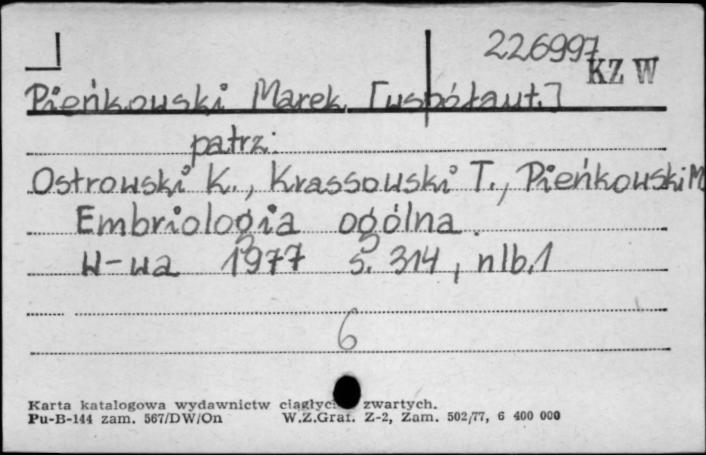 226997
KZ W
Pieńkowski Marek [współaut.]
patrz:
Ostrowski K., Krassowski T., Pieńkowski M
Embriologia ogólna.
W-wa 1977 s. 314, nlb. 1
6
Karta katalogowa wydawnictw zwartych.
Pu-B-144 zam. 567/DW/On W.Z.Graf. Z-2, Zam. 502/77, 6 400 000